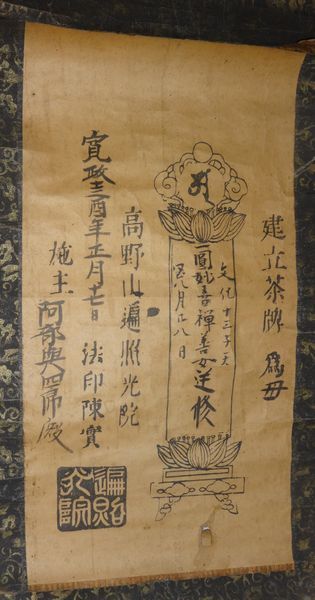 建立茶牌 為母
文化十三子天
一圓妙善禪善女逆修
閏八月廿八日
高野山遍照光院
法印陳實
寛政十三酉年正月十七日
施主 阿部與四郎殿
遍照
光院